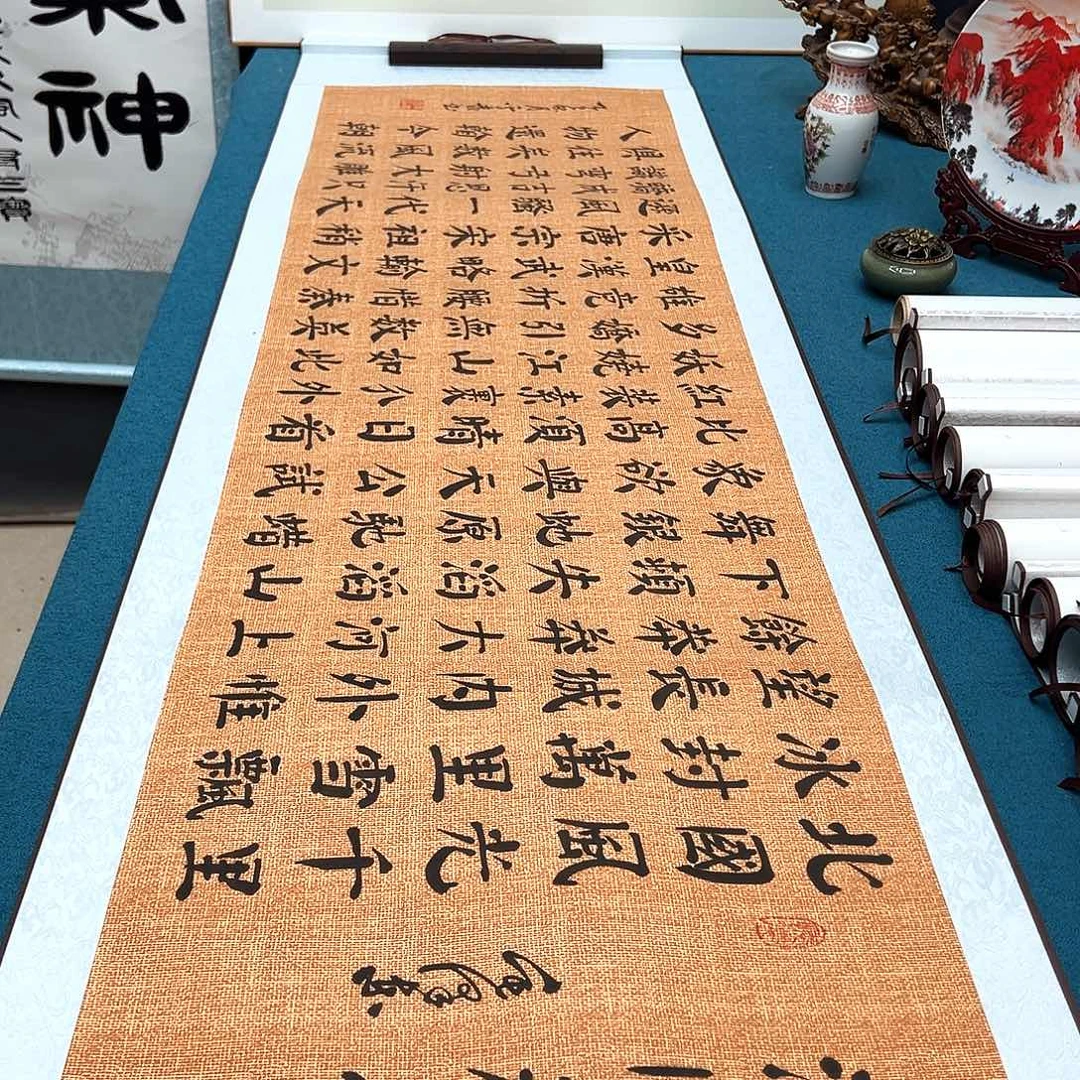 神
北國風光千里
冰封萬里雪飄
望長城內外惟
餘莽莽大河上
下頓失滔滔山
舞銀蛇原馳蜡
象欲與天公試
比高須晴日看
紅裝素裹分外
妖嬈江山如此
多嬌引無數英
雄競折腰惜秦
皇漢武略輸文
采唐宗宋祖稍
遜風騷一代天
驕成吉思汗只
識彎弓射大雕
俱往矣數風流
人物還看今朝